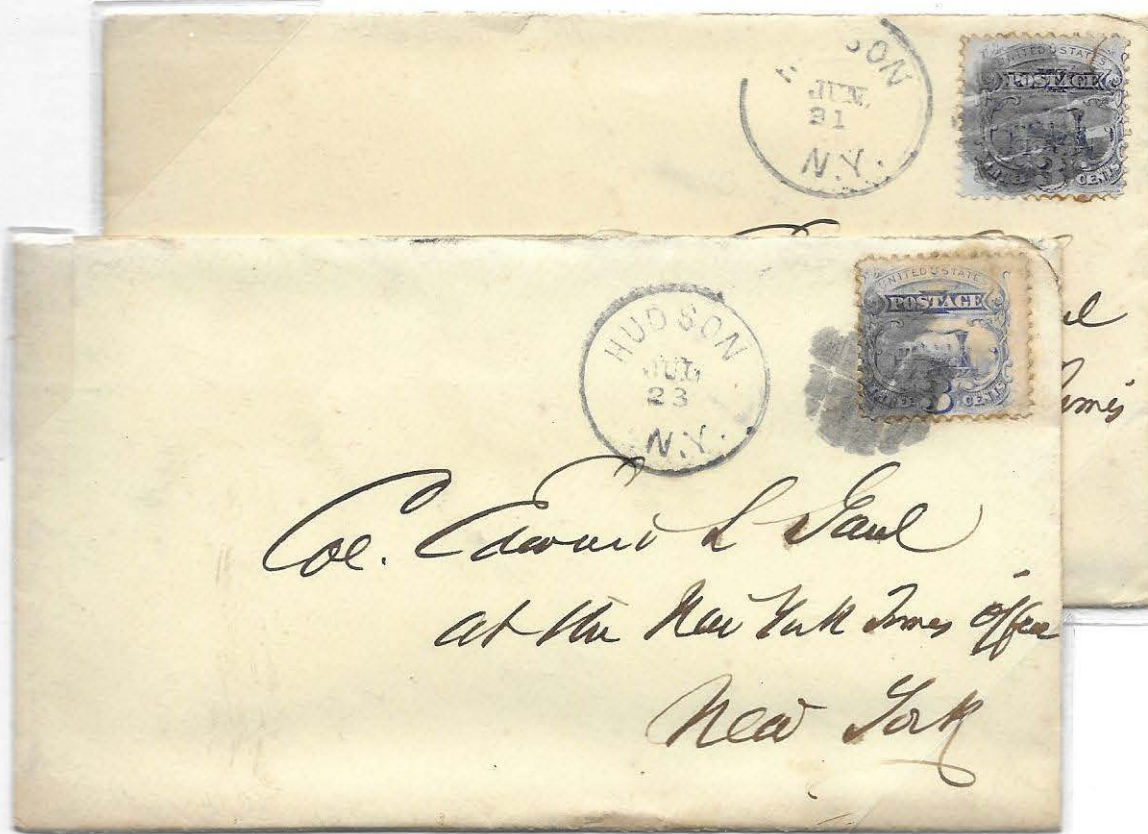 HUDSON
JUN.
21
N.Y.
UNITED STATES
POSTAGE
CENTS
HUDSON
JUL
23
N.Y.
UNITED STATES
POSTAGE
THREE 3 CENTS
Times
Col. Edward L Gaul
at the New York Times Office
New York